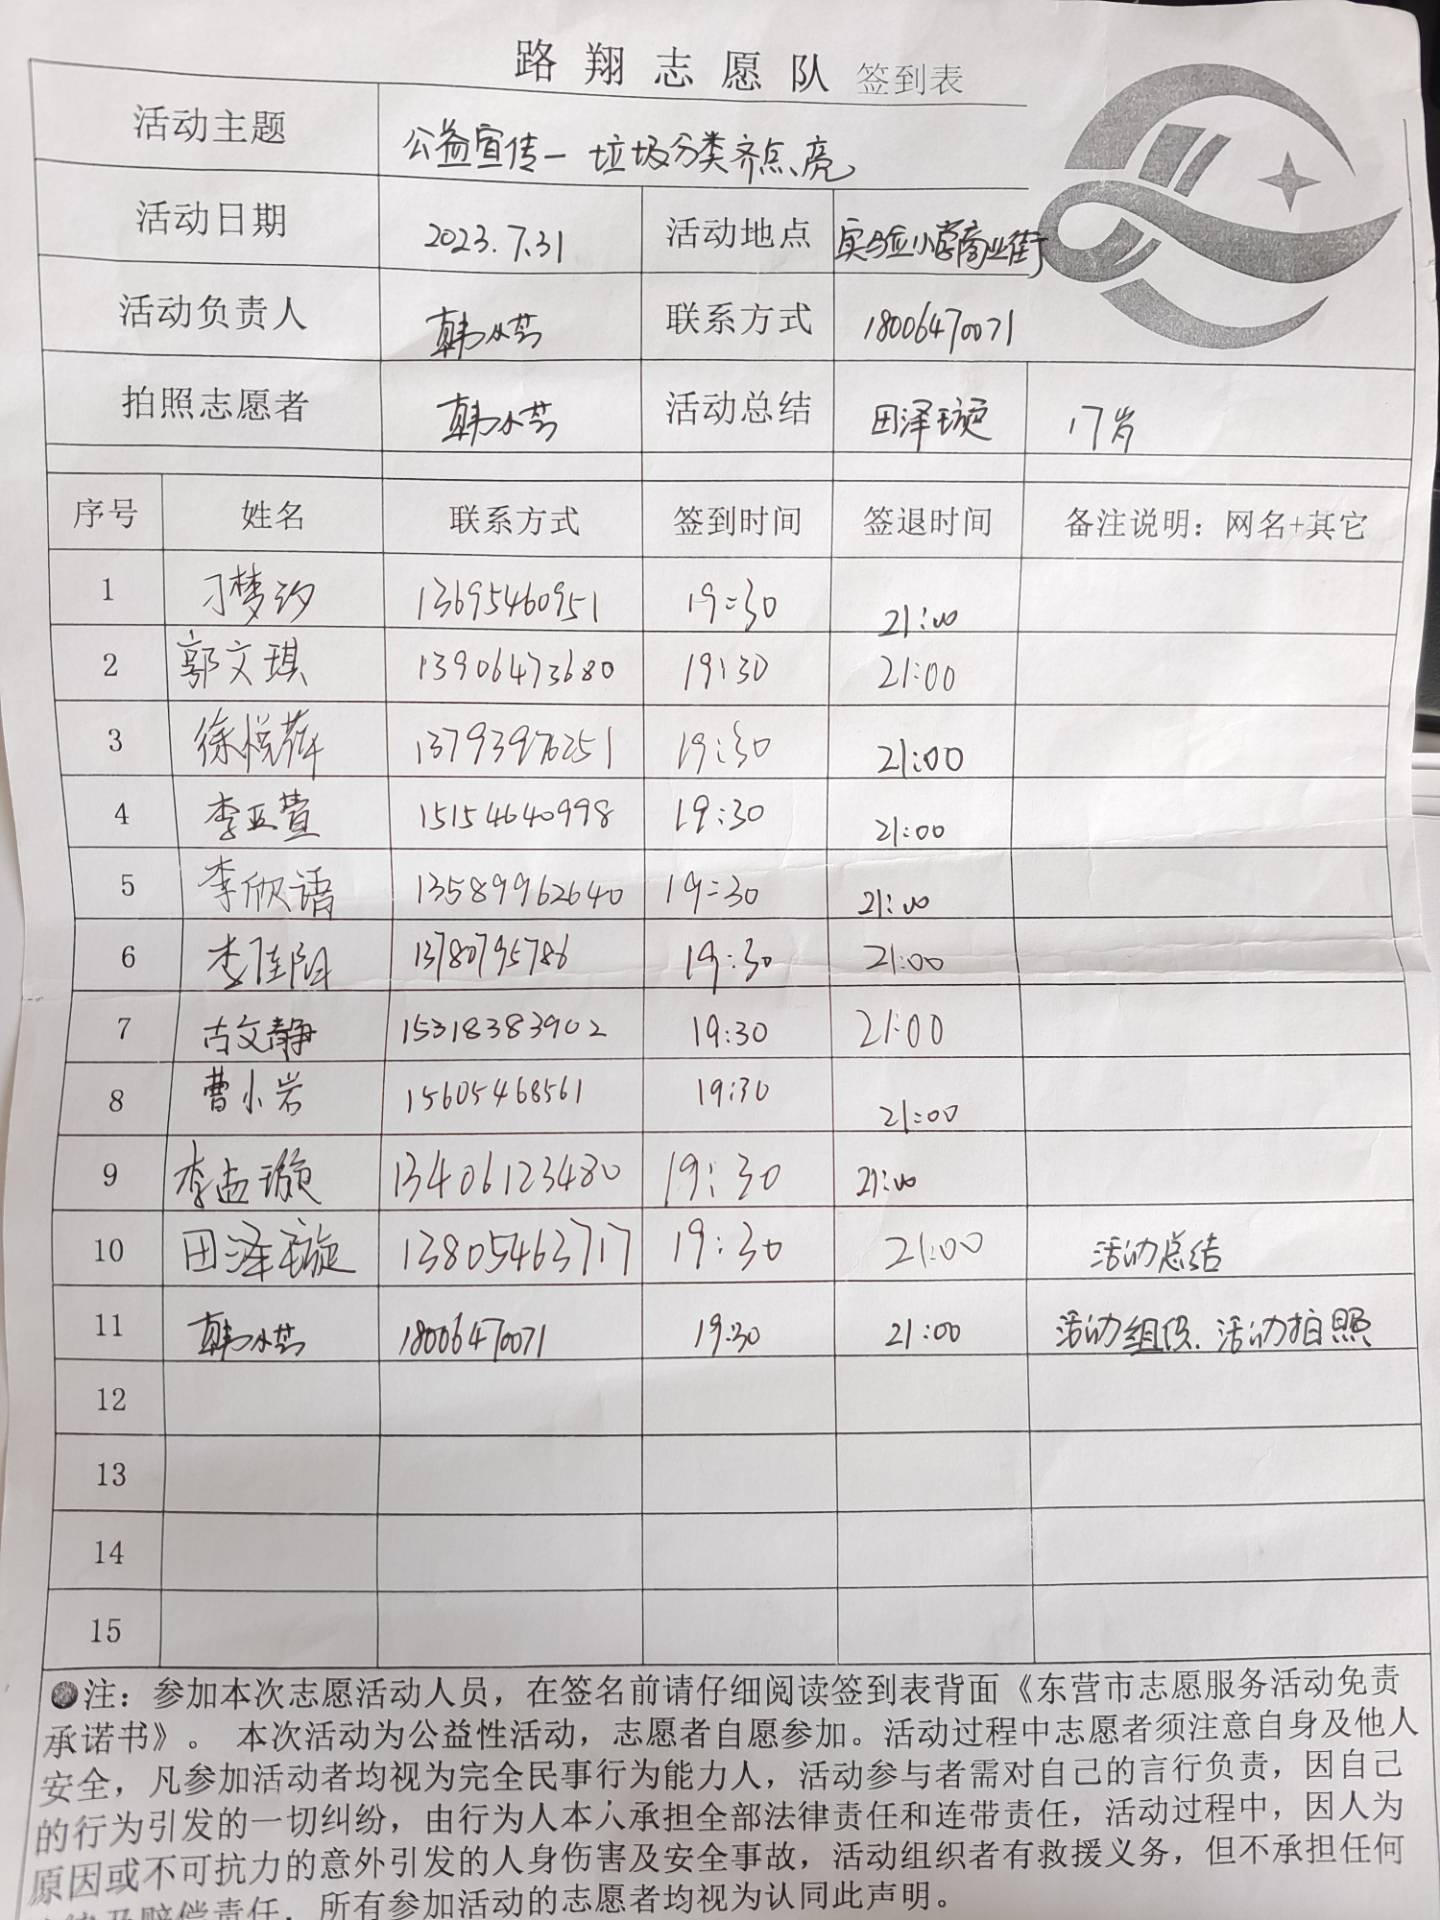 路翔志愿队 签到表
活动主题 公益宣传—垃圾分类齐点亮
活动日期 2023.7.31 活动地点 实验小学商业街
活动负责人 韩水芸 联系方式 18006470071
拍照志愿者 韩水芸 活动总结 田泽璇 17岁
序号 姓名 联系方式 签到时间 签退时间 备注说明：网名+其它
1 刁梦汐 13695460951 19:30 21:00
2 郭文琪 13906473680 19:30 21:00
3 徐悦 13793976251 19:30 21:00
4 李亚萱 15154640998 19:30 21:00
5 李欣语 13589962640 19:30 21:00
6 李佳阳 13780795786 19:30 21:00
7 古文静 15318383902 19:30 21:00
8 曹小岩 15605468561 19:30 21:00
9 李孟璇 13406123480 19:30 21:00
10 田泽璇 13805463717 19:30 21:00 活动总结
11 韩水芸 18006470071 19:30 21:00 活动组织、活动拍照
12
13
14
15
●注：参加本次志愿活动人员，在签名前请仔细阅读签到表背面《东营市志愿服务活动免责
承诺书》。 本次活动为公益性活动，志愿者自愿参加。活动过程中志愿者须注意自身及他人
安全，凡参加活动者均视为完全民事行为能力人，活动参与者需对自己的言行负责，因自己
的行为引发的一切纠纷，由行为人本人承担全部法律责任和连带责任，活动过程中，因人为
原因或不可抗力的意外引发的人身伤害及安全事故，活动组织者有救援义务，但不承担任何
法律及赔偿责任，所有参加活动的志愿者均视为认同此声明。